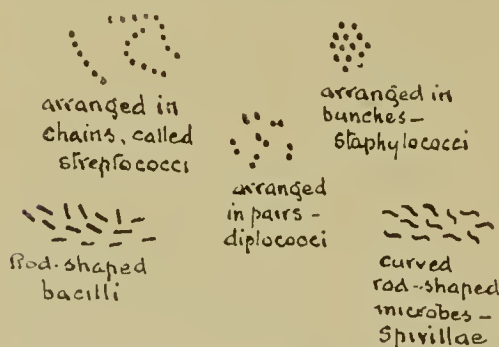 arranged in
chains, called
streptococci
arranged in
bunches—
staphylococci
arranged
in pairs—
diplococci
Rod-shaped
bacilli
curved
rod-shaped
microbes—
Spirillae